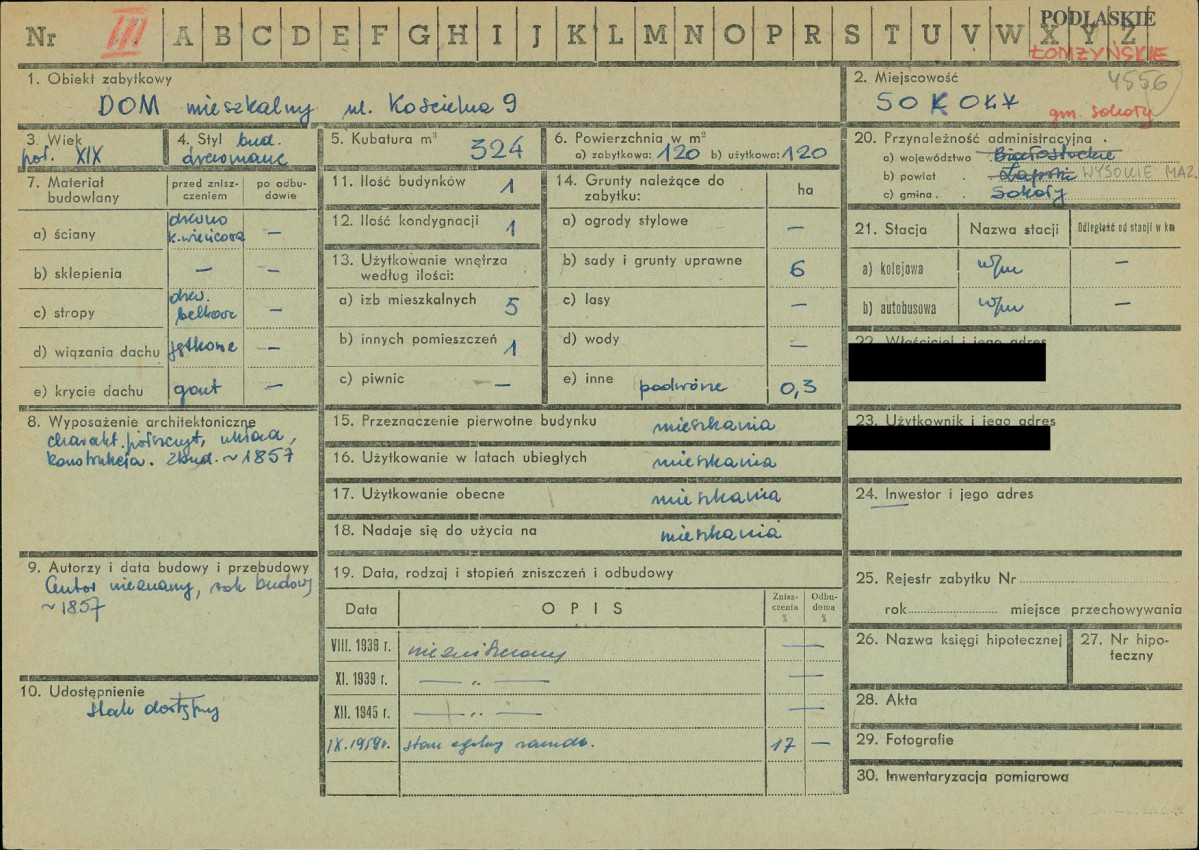 PODLASKIE
Nr III A B C D E F G H I J K L M N O P R S T U V W X Y Z
ŁOMŻYŃSKIE
1. Obiekt zabytkowy
DOM mieszkalny ul. Kościelna 9
2. Miejscowość
4556
SOKOŁY
gm. Sokoły
3. Wiek
poł. XIX
4. Styl bud.
drewniane
5. Kubatura m³ 324
6. Powierzchnia w m²
a) zabytkowa: 120 b) użytkowa: 120
20. Przynależność administracyjna
a) województwo Białostockie
b) powiat Łapski WYSOKIE MAZ.
c) gmina Sokoły
7. Materiał budowlany
przed zniszczeniem
po odbudowie
a) ściany drewno k. wieńcowa —
b) sklepienia — —
c) stropy drew. belkowe —
d) wiązania dachu jętkowe —
e) krycie dachu gont —
11. Ilość budynków 1
12. Ilość kondygnacji 1
13. Użytkowanie wnętrza według ilości:
a) izb mieszkalnych 5
b) innych pomieszczeń 1
c) piwnic —
14. Grunty należące do zabytku:
ha
a) ogrody stylowe —
b) sady i grunty uprawne 6
c) lasy —
d) wody —
e) inne podwórze 0,3
21. Stacja
Nazwa stacji
Odległość od stacji w km
a) kolejowa w/m —
b) autobusowa w/m —
22. Właściciel i jego adres
23. Użytkownik i jego adres
24. Inwestor i jego adres
8. Wyposażenie architektoniczne
charakt. półszczyt, układ,
konstrukcja. Zbud. ~ 1857
15. Przeznaczenie pierwotne budynku mieszkania
16. Użytkowanie w latach ubiegłych mieszkania
17. Użytkowanie obecne mieszkania
18. Nadaje się do użycia na mieszkania
9. Autorzy i data budowy i przebudowy
Autor nieznany, rok budowy
~ 1857
10. Udostępnienie
stale dostępny
19. Data, rodzaj i stopień zniszczeń i odbudowy
Data
OPIS
Zniszczenia %
Odbudowa %
VIII. 1939 r. niezniszczony —
XI. 1939 r. — „ — —
XII. 1945 r. — „ — —
IX. 1959 r. stan ogólny zaniedb. 17 —
25. Rejestr zabytku Nr
rok miejsce przechowywania
26. Nazwa księgi hipotecznej
27. Nr hipoteczny
28. Akta
29. Fotografie
30. Inwentaryzacja pomiarowa